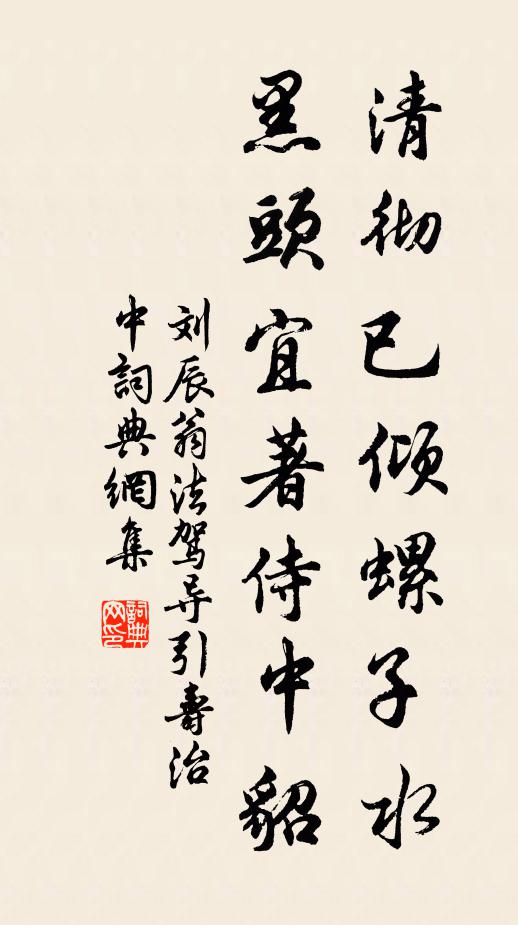 清彻已倾螺子水
黑頭宜著侍中貂
刘辰翁法驾导引壽治
中詞典網集
詞典网印